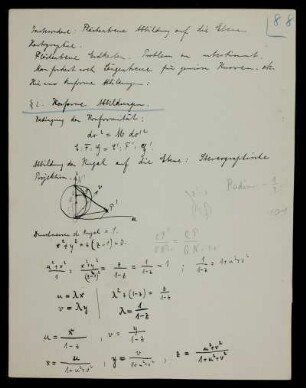 88
Insbesondere: Flächentreue Abbildung auf die Ebene.
Kartographie.
Flächentreue Problem an unbestimmt.
Man fordert noch Längentreue für gewisse Kurven, etc
Hier nur konforme Abbildungen.
§ 2. Konforme Abbildungen.
Bedingung der Konformität:
ds² = M ds'²
E : F : G = E' : F' : G'.
Abbildung der Kugel auf die Ebene: Stereographische
Projektion.
P'
u
Durchmesser der Kugel = 1.
x² + y² + z(z-1) = 0.
u²+v²/1 = x²+y²/(1-z)² = z/1-z = 1/1-z - 1 ; 1/1-z = 1+u²+v²
u = λx
v = λy
λ² + (1-z) = z/1-z
λ = 1/1-z
u = x/1-z ; v = y/1-z
x = u/1+u²+v² ; y = v/1+u²+v² ; z = u²+v²/1+u²+v²